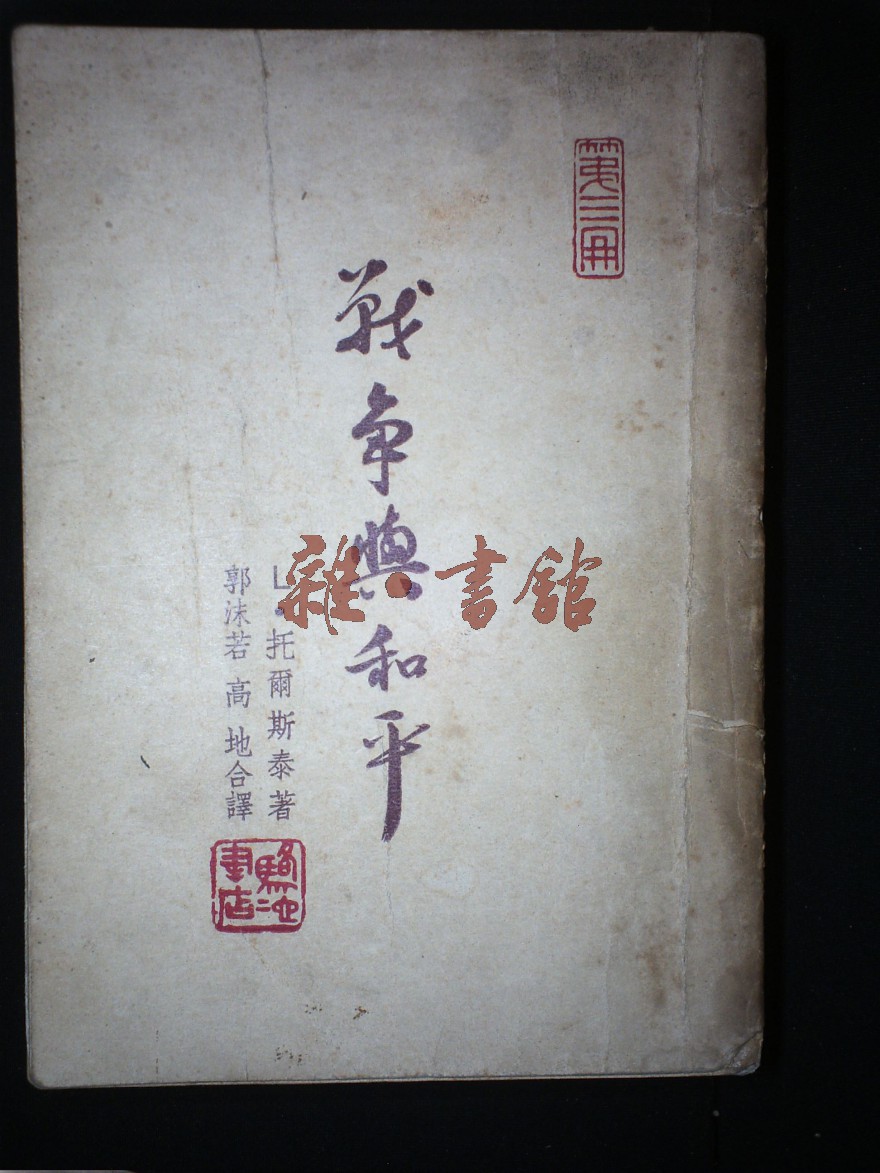 第三冊
戰爭與和平
L·托爾斯泰著
郭沫若 高 地合譯
駱駝書店
雜·書館